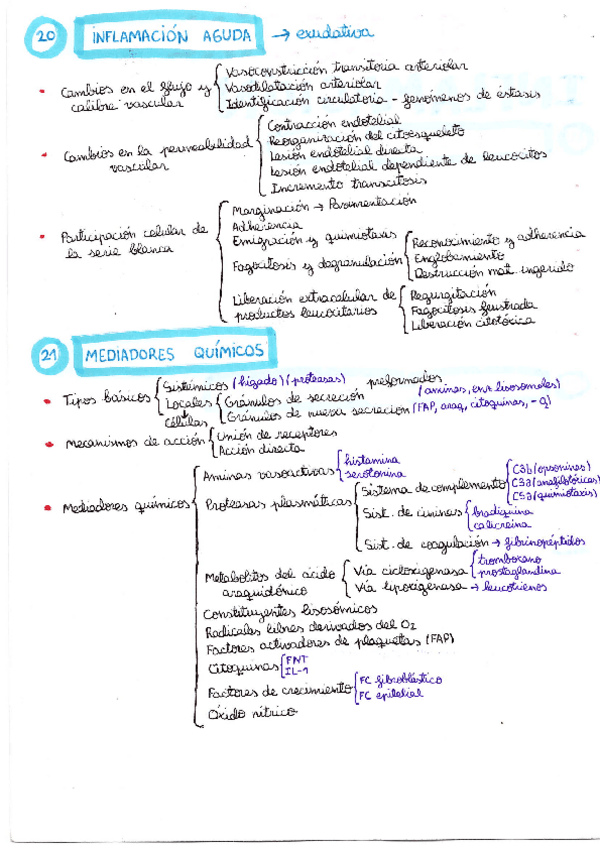 20 INFLAMACIÓN AGUDA → exudativa
• Cambios en el flujo y calibre vascular
Vasoconstricción transitoria arteriolar
Vasodilatación arteriolar
Identificación circulatoria - fenómenos de éstasis
• Cambios en la permeabilidad vascular
Contracción endotelial
Reorganización del citoesqueleto
Lesión endotelial directa
Lesión endotelial dependiente de leucocitos
Incremento transcitosis
• Participación celular de la serie blanca
Marginación → Pavimentación
Adherencia
Emigración y quimiotaxis
Fagocitosis y degranulación
Reconocimiento y adherencia
Englobamiento
Destrucción mat. ingerido
Liberación extracelular de productos leucocitarios
Regurgitación
Fagocitosis frustrada
Liberación citotóxica
21 MEDIADORES QUÍMICOS
• Tipos básicos
Sistémicos (hígado) (proteasas)
Locales
↓
Células
Gránulos de secreción preformados (aminas, enz. lisosomales)
Gránulos de nueva secreción (FAP, araq, citoquinas, - Q)
• Mecanismos de acción
Unión de receptores
Acción directa
• Mediadores químicos
Aminas vasoactivas
histamina
serotonina
Proteasas plasmáticas
Sistema de complemento
C3b (opsoninas)
C3a (anafilotóxicas)
C5a (quimiotaxis)
Sist. de cininas
bradiquina
calicreína
Sist. de coagulación → fibrinopéptidos
Metabolitos del ácido araquidónico
Vía cicloxigenasa
tromboxano
prostaglandina
Vía lipoxigenasa → leucotrienos
Constituyentes lisosómicos
Radicales libres derivados del O2
Factores activadores de plaquetas (FAP)
Citoquinas
FNT
IL-1
Factores de crecimiento
FC fibroblástico
FC epitelial
Óxido nítrico